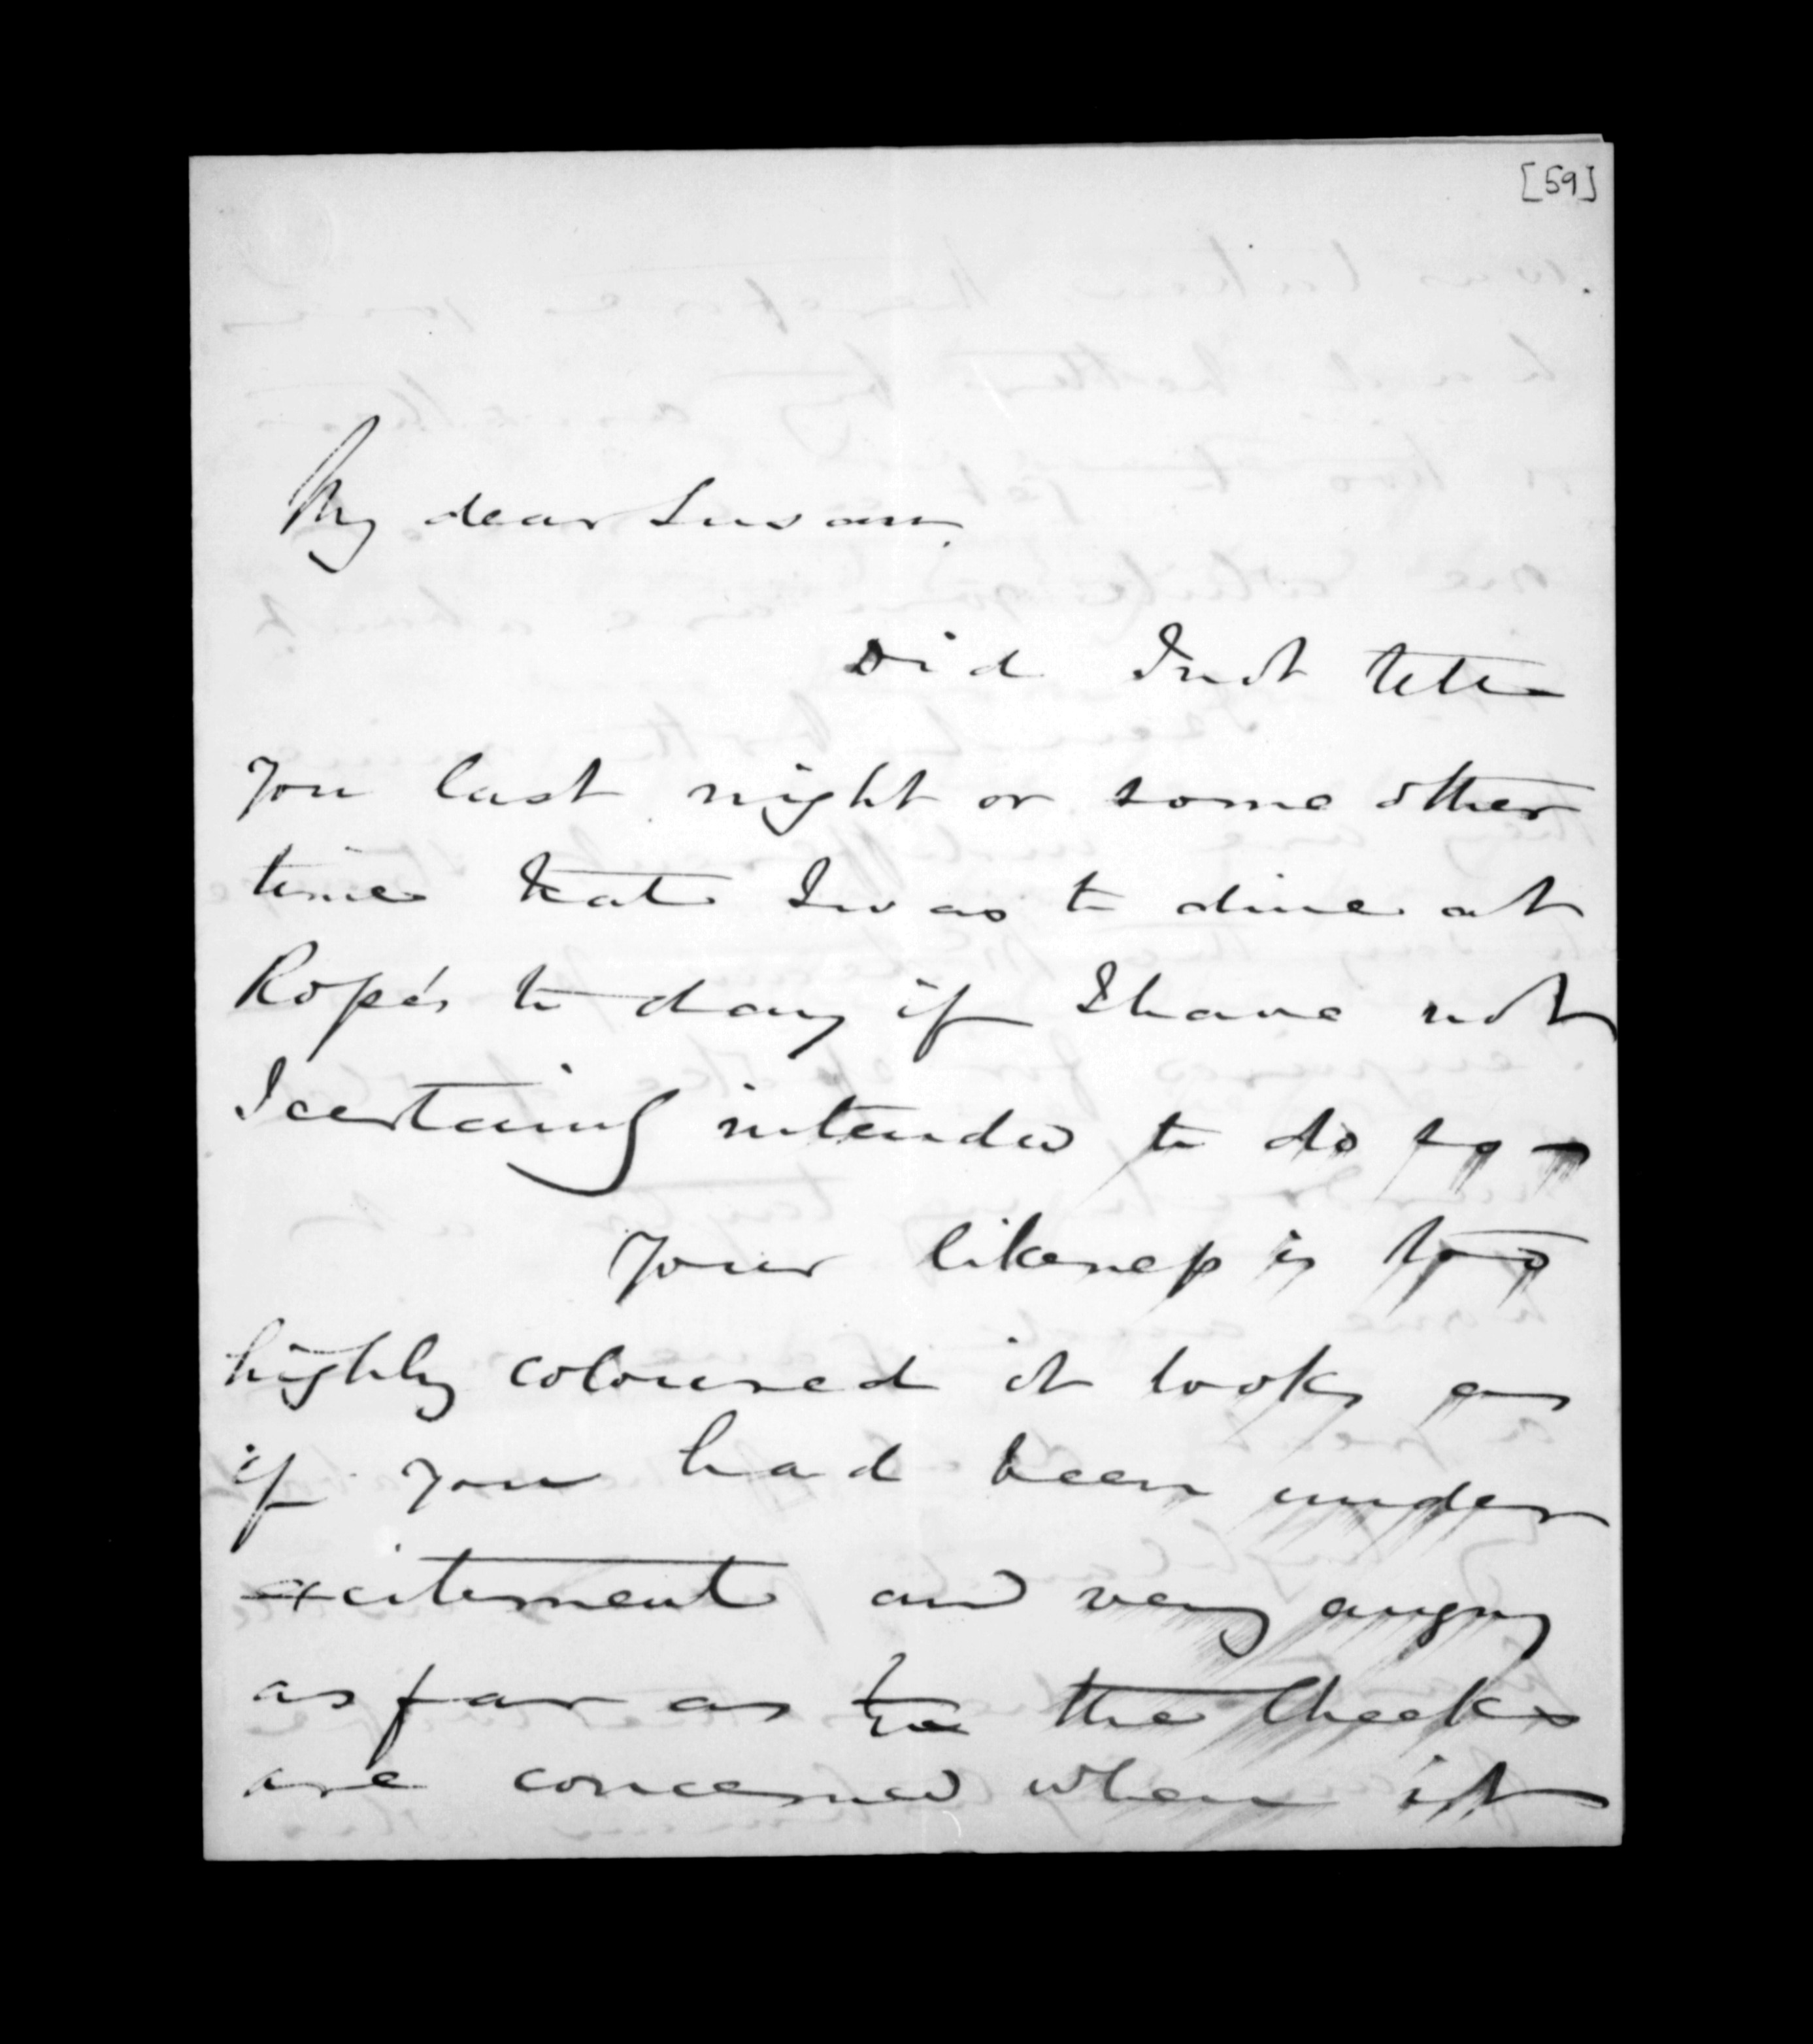 [59]
My dear Susan.
Did I not tell
you last night or some other
time that I was to dine at
Rope's to day if I have not
I certainly intended to do so -
Your likeness is too
highly coloured it looks as
if you had been under
excitement and very angry
as far as to the Cheeks
are concerned when it